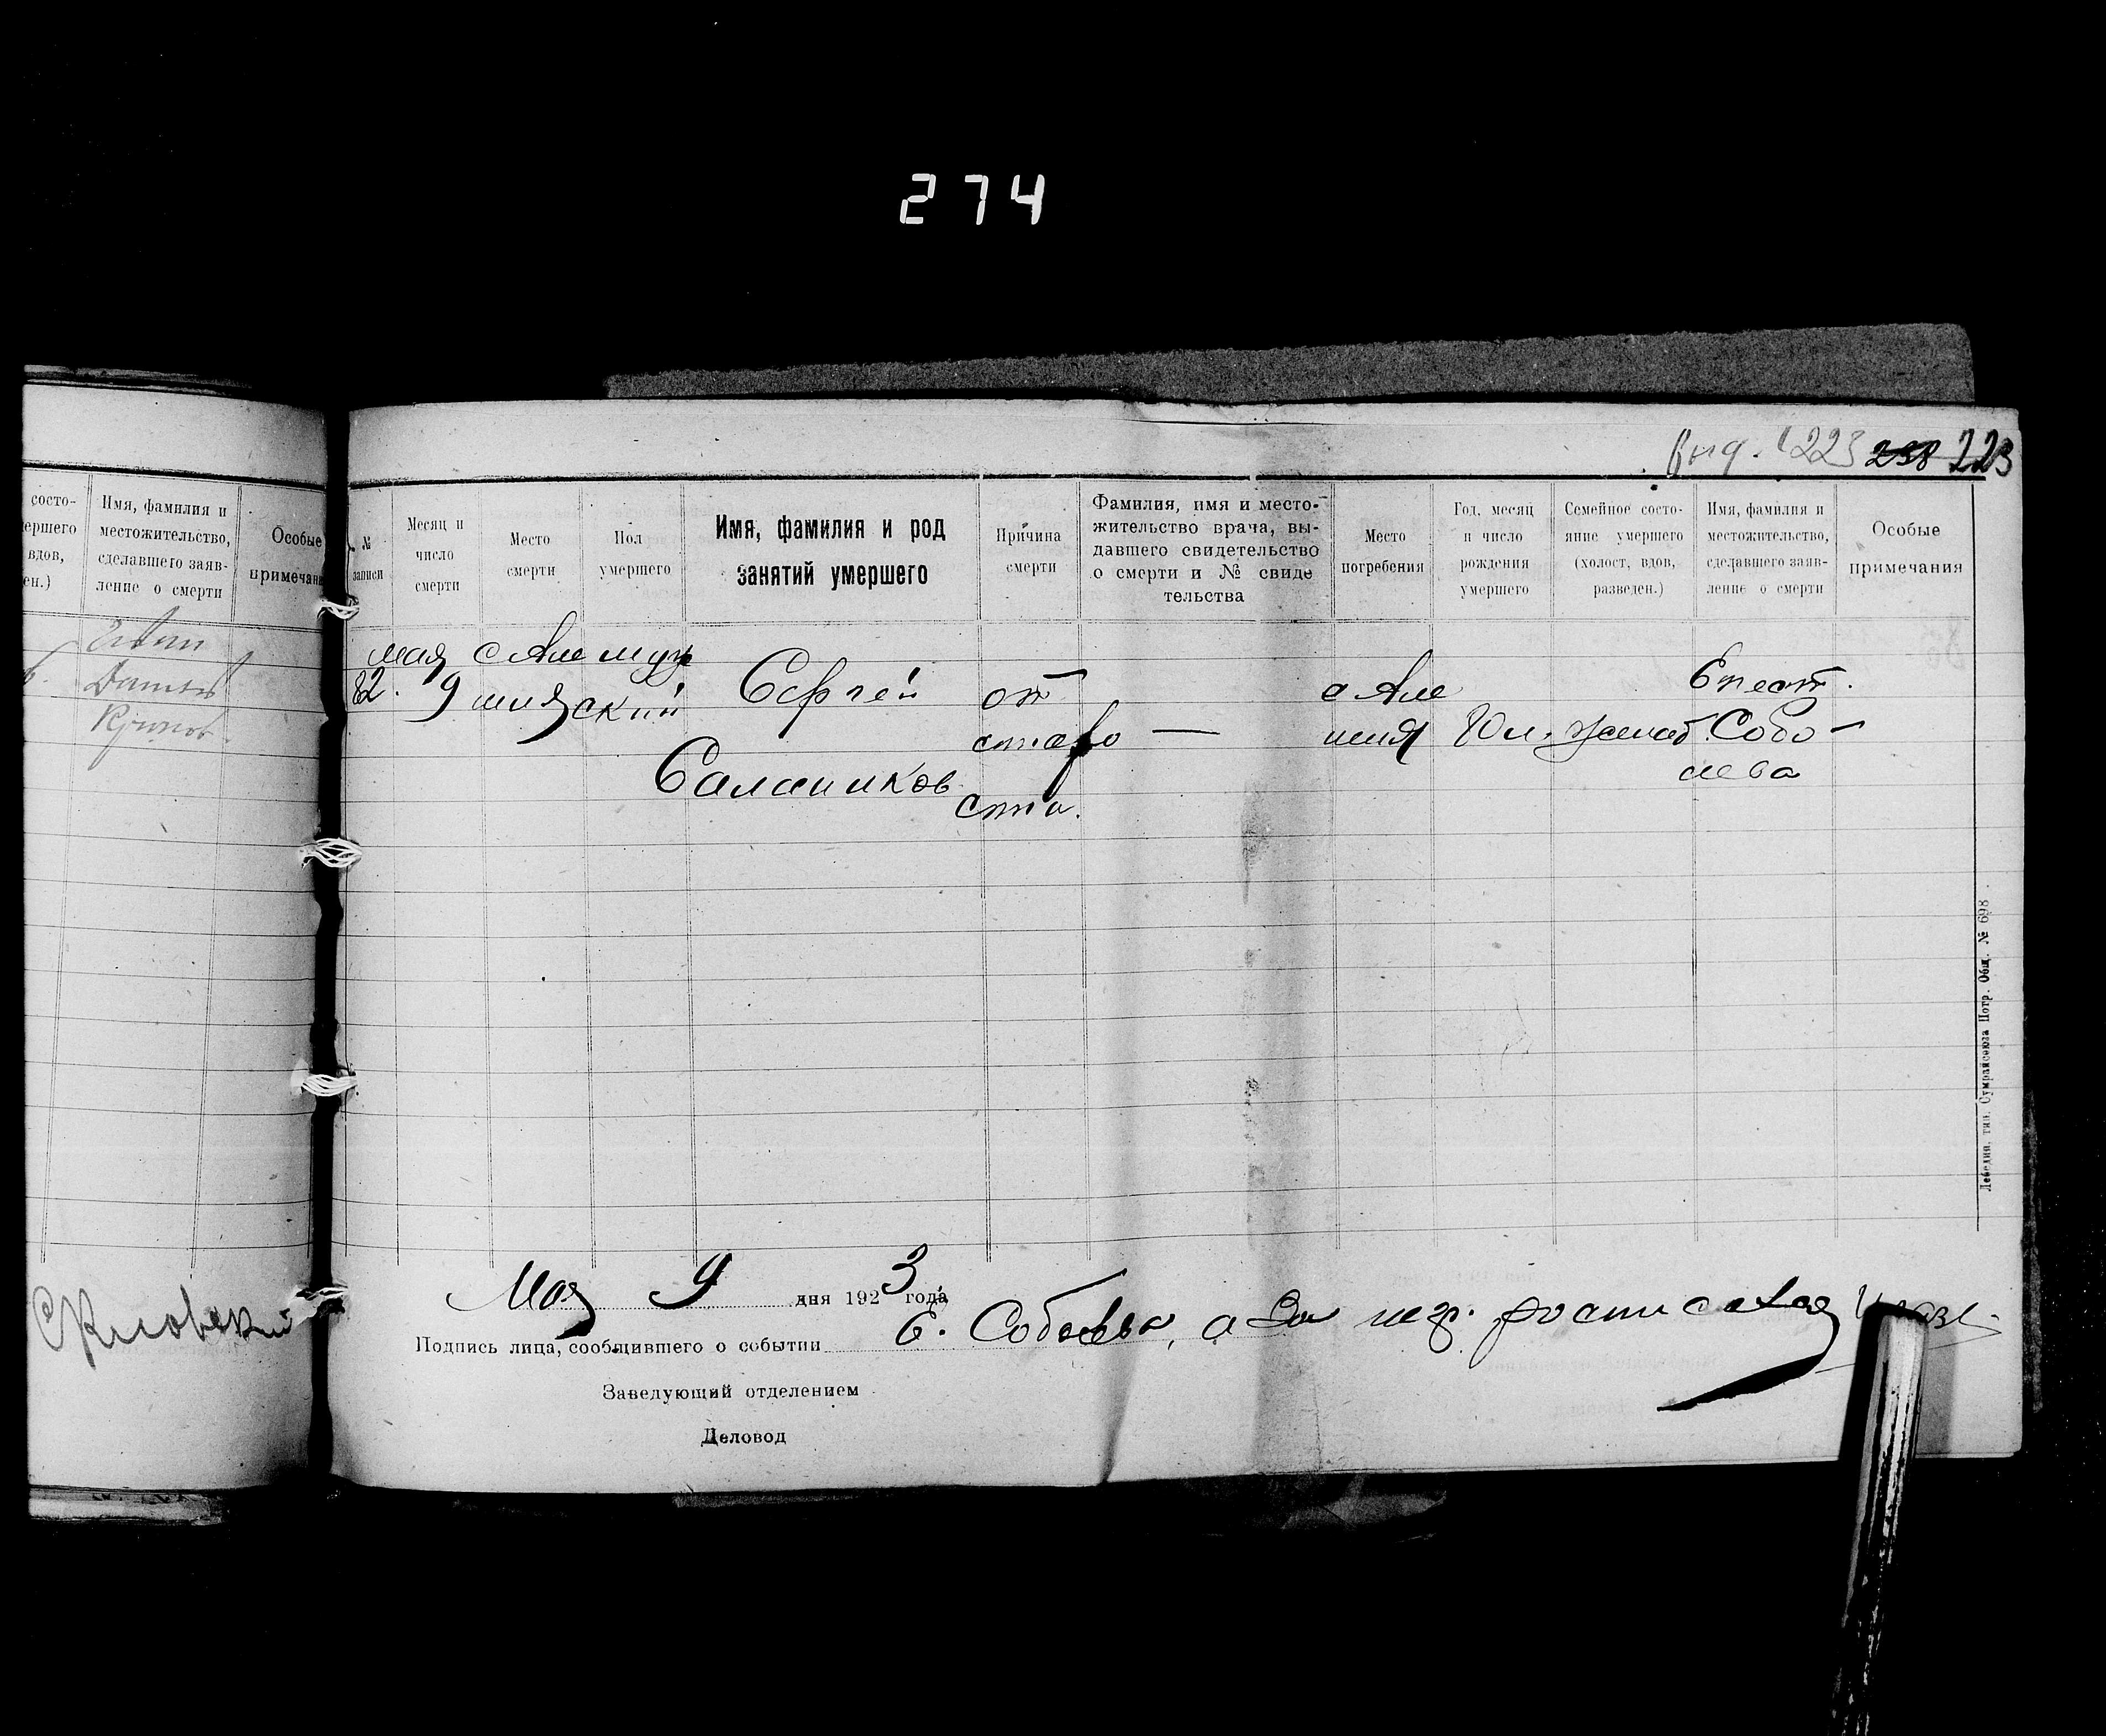 274
223 258 223
состо-
ершего
вдов,
ен.)
Имя, фамилия и
местожительство,
сделавшего заяв-
ление о смерти
Особые
примечани
№
записи
Месяц и
число
смерти
Место
смерти
Пол
умершего
Имя, фамилия и род
занятий умершего
Причина
смерти
Фамилия, имя и место-
жительство врача, вы-
давшего свидетельство
о смерти и № свиде
тельства
Место
погребения
Год, месяц
и число
рождения
умершего
Семейное состо-
яние умершего
(холост, вдов,
разведен.)
Имя, фамилия и
местожительство,
сделавшего заяв-
ление о смерти
Особые
примечания
82.
мая
9
с Але
шня
муж
ский
Сергей
от
старо
сти.
—
с Але
шня
Собо
лева
—
Мая 9 дня 1923 года
Подпись лица, сообщившего о событии Е. Соболева, а за нег.
Заведующий отделением
Деловод
Лебедин. тип. Сумрайсоюза Потр. Общ. № 698.